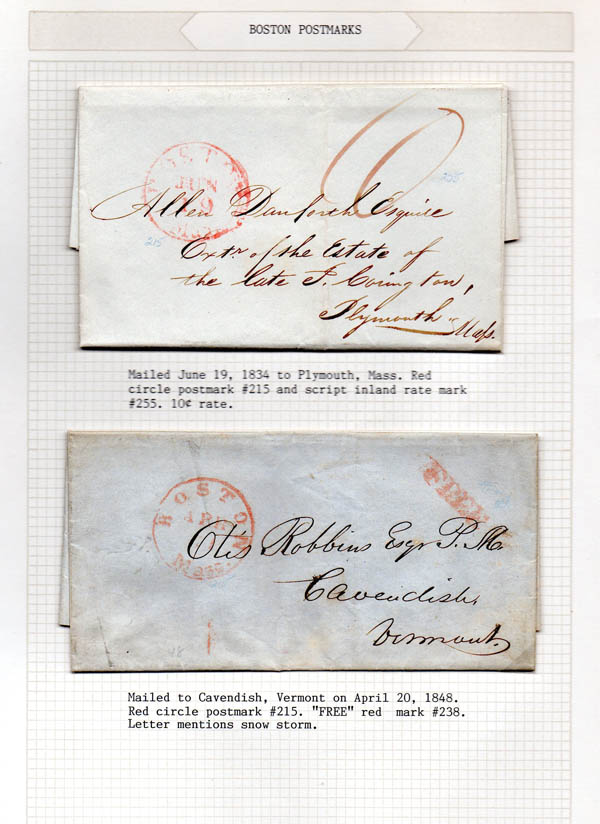 BOSTON POSTMARKS
BOSTON
JUN
19
MASS.
6
255
215
Allen Danforth Esquire
Extr. of the Estate of
the late J. Covington,
Plymouth
Mass.
Mailed June 19, 1834 to Plymouth, Mass. Red
circle postmark #215 and script inland rate mark
#255. 10¢ rate.
BOSTON
APR
Mass.
FREE
Otis Robbins Esqr P.M.
Cavendish,
Vermont.
48
Mailed to Cavendish, Vermont on April 20, 1848.
Red circle postmark #215. "FREE" red mark #238.
Letter mentions snow storm.